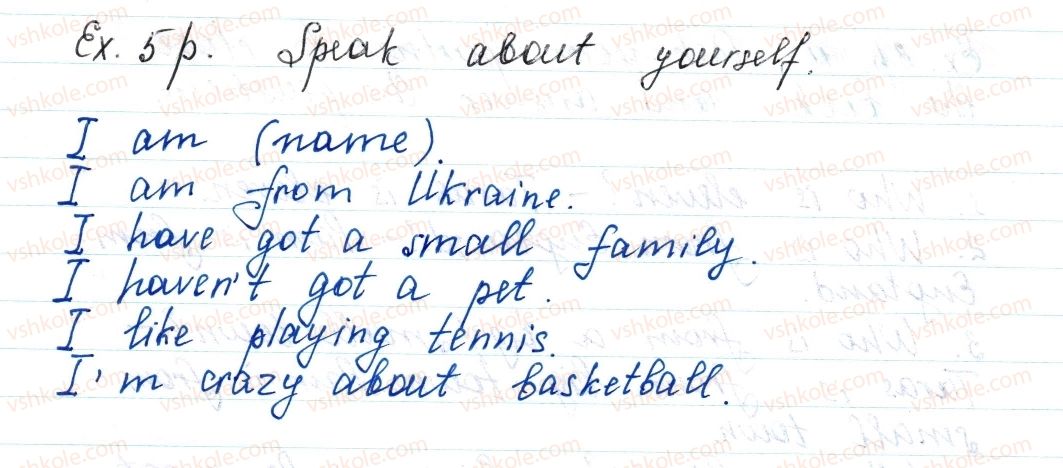 Ex. 5 p. Speak about yourself.
I am (name).
I am from Ukraine.
I have got a small family.
I haven't got a pet.
I like playing tennis.
I'm crazy about basketball.